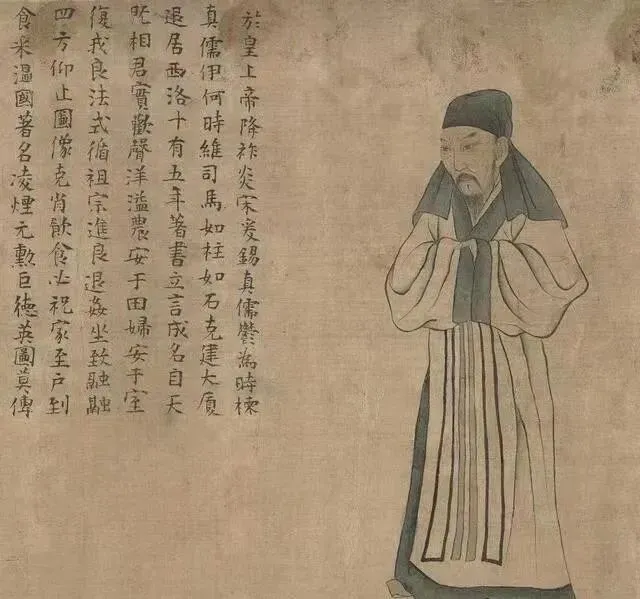 於皇上帝降祚炎宋爰錫真儒鬱為時棟
真儒伊何時維司馬如柱如石克建大厦
退居西洛十有五年著書立言成名自天
既相君實歡聲洋溢農安于田婦安于室
復我良法式循祖宗進良退姦坐致融融
四方仰止圖像克肖飲食必祝家至戶到
食采溫國著名凌煙元勲巨德英圖莫傳